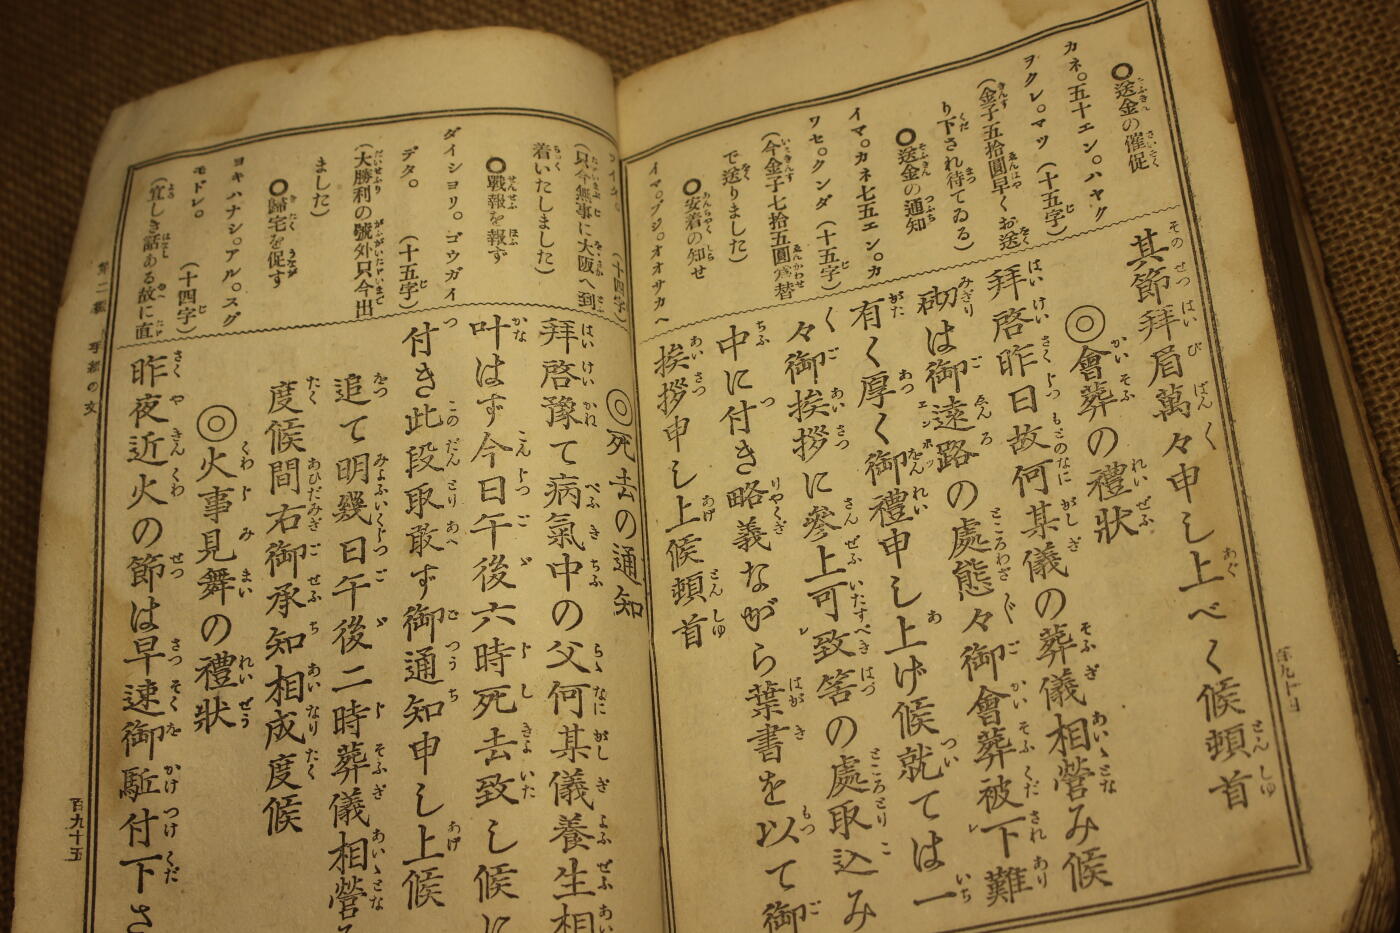 ◎送金の催促
カネ。五十エン。ハヤク
ヲクレ。マツ (十五字)
(金子五拾圓早くお送
り下され待てゐる)
◎送金の通知
イマ。カネ七五エン。カ
ワセ。クンダ (十五字)
(今金子七拾五圓爲替
で送りました)
◎安着の知せ
イマ。ブジ。オオサカヘ
其節拜眉萬々申し上べく候頓首
◎會葬の禮狀
拜啓昨日故何某儀の葬儀相營み候
砌は御遠路の處態々御會葬被下難
有く厚く御禮申し上げ候就ては一
々御挨拶に參上可致筈の處取込み
中に付き略義ながら葉書を以て御
挨拶申し上候頓首
(十四字)
(只今無事に大阪へ到
着いたしました)
◎戰報を報ず
ダイショリ。ゴウガイ
デタ。 (十五字)
(大勝利の號外只今出
ました)
◎歸宅を促す
ヨキハナシ。アル。スグ
モドレ。 (十四字)
(宜しき話ある故に直
◎死去の通知
拜啓豫て病氣中の父何某儀養生相
叶はず今日午後六時死去致し候に
付き此段取敢ず御通知申し上候
追て明幾日午後二時葬儀相營み
度候間右御承知相成度候
◎火事見舞の禮狀
昨夜近火の節は早速御駈付下さ
手紙の文
百九十五